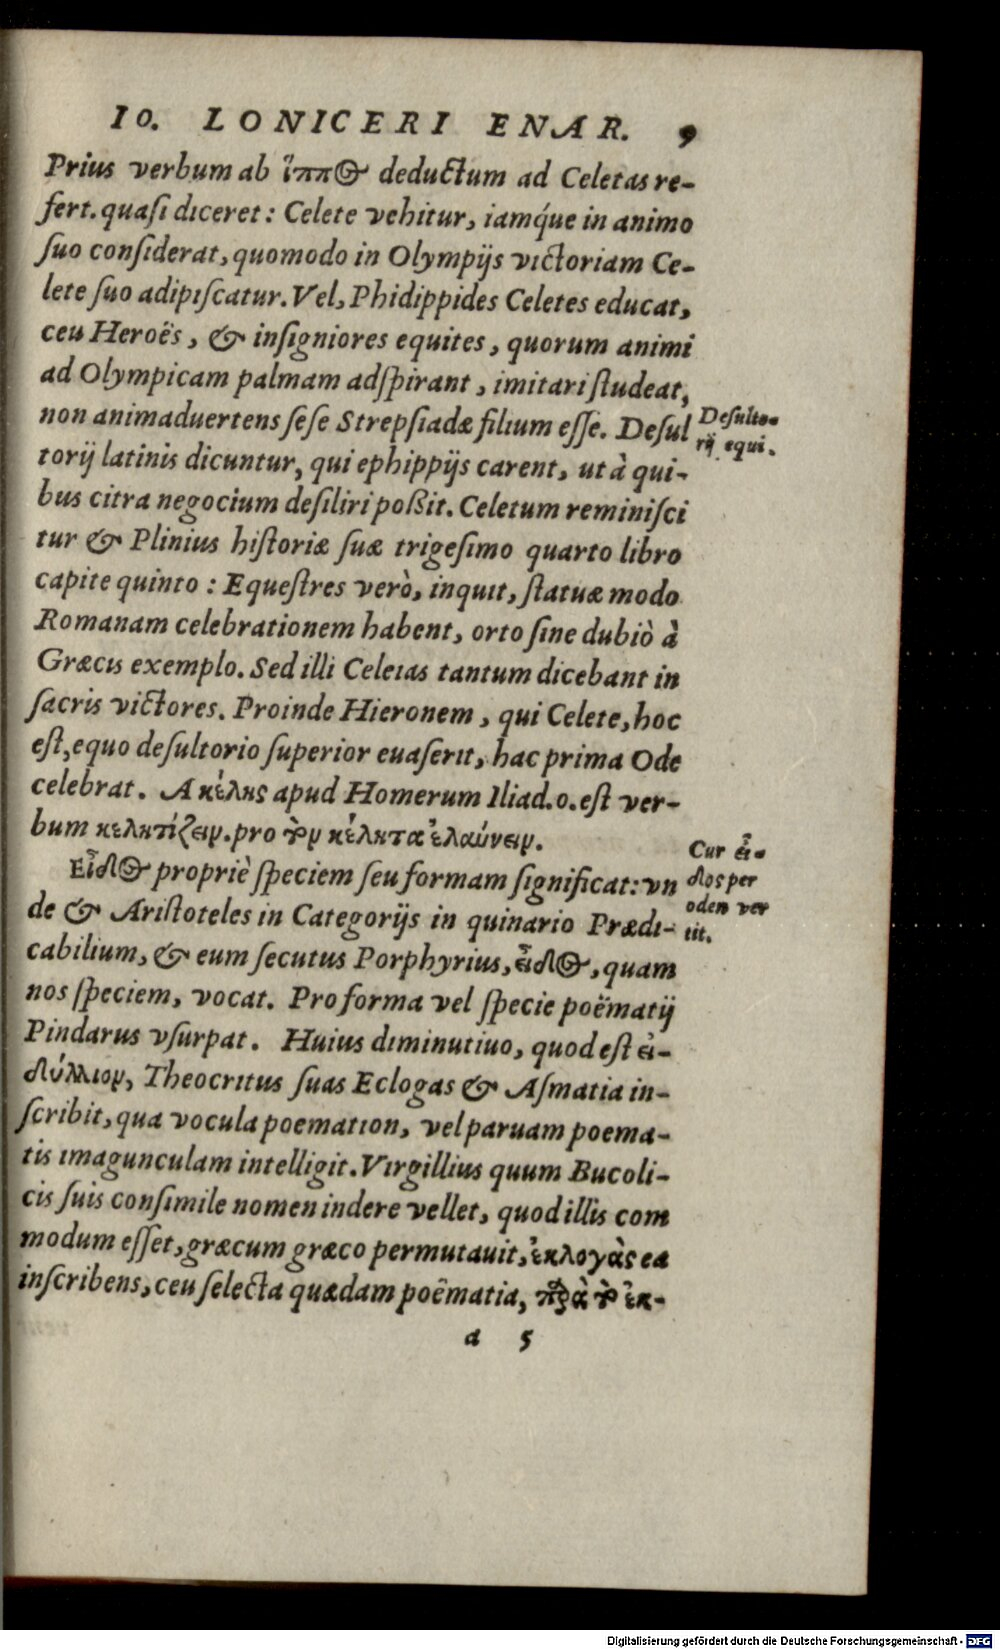 IO. LONICERI ENAR. 9
Prius verbum ab ἵππος deductum ad Celetas re-
fert. quaſi diceret: Celete vehitur, iamq́ue in animo
ſuo conſiderat, quomodo in Olympijs victoriam Ce-
lete ſuo adipiſcatur. Vel, Phidippides Celetes educat,
ceu Heroës, & inſigniores equites, quorum animi
ad Olympicam palmam adſpirant, imitari ſtudeat,
non animaduertens ſeſe Strepſiadæ filium eſſe. Deſul
torij latinis dicuntur, qui ephippijs carent, ut à qui-
bus citra negocium deſiliri poßit. Celetum reminiſci
tur & Plinius hiſtoriæ ſuæ trigeſimo quarto libro
capite quinto: Equeſtres verò, inquit, ſtatuæ modo
Romanam celebrationem habent, orto ſine dubiò à
Græcis exemplo. Sed illi Celetas tantum dicebant in
ſacris victores. Proinde Hieronem, qui Celete, hoc
eſt, equo deſultorio ſuperior euaſerit, hac prima Ode
celebrat. A κέλης apud Homerum Iliad. o. eſt ver-
bum κελητίζειν. pro τὸν κέλητα ἐλαύνειν.
Εἶδος propriè ſpeciem ſeu formam ſignificat: vn
de & Ariſtoteles in Categorijs in quinario Prædi-
cabilium, & eum ſecutus Porphyrius, εἶδος, quam
nos ſpeciem, vocat. Pro forma vel ſpecie poëmatij
Pindarus vſurpat. Huius diminutiuo, quod eſt εἰ-
δύλλιον, Theocritus ſuas Eclogas & Aſmatia in-
ſcribit, qua vocula poemation, vel paruam poema-
tis imagunculam intelligit. Virgillius quum Bucoli-
cis ſuis conſimile nomen indere vellet, quod illis com
modum eſſet, græcum græco permutauit, ἐκλογὰς ea
inſcribens, ceu ſelecta quædam poëmatia, παρὰ τὸ ἐκ-
a 5
Deſulto-
rij equi.
Cur εἶ-
δος per
oden ver
tit.
Digitalisierung gefördert durch die Deutsche Forschungsgemeinschaft - DFG